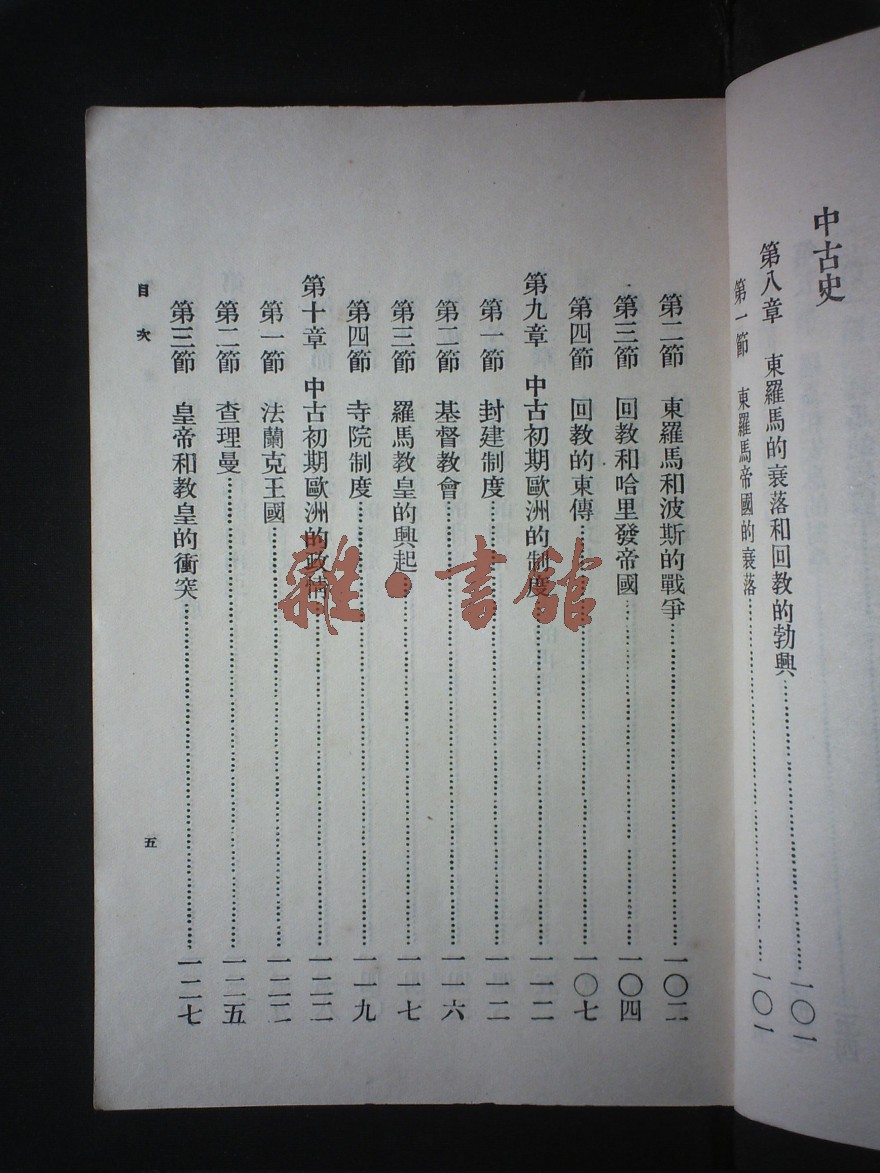 中古史
第八章　東羅馬的衰落和回教的勃興……一〇一
第一節　東羅馬帝國的衰落……一〇一
第二節　東羅馬和波斯的戰爭……一〇二
第三節　回教和哈里發帝國……一〇四
第四節　回教的東傳……一〇七
第九章　中古初期歐洲的制度……一一二
第一節　封建制度……一一二
第二節　基督教會……一一六
第三節　羅馬教皇的興起……一一七
第四節　寺院制度……一一九
第十章　中古初期歐洲的政情……一二二
第一節　法蘭克王國……一二二
第二節　查理曼……一二五
第三節　皇帝和教皇的衝突……一二七
目次
五
雜·書館